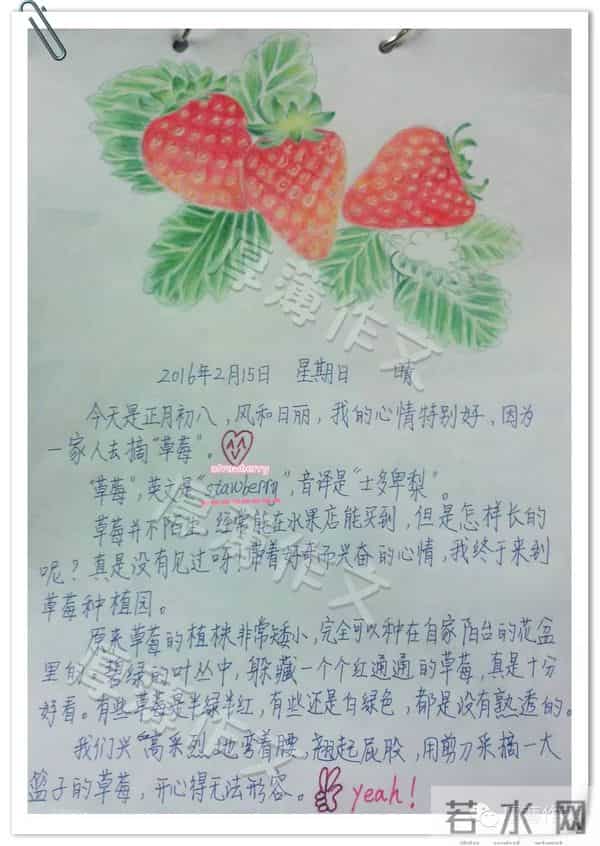 2016年2月15日 星期日 晴
今天是正月初八，风和日丽，我的心情特别好、因为
一家人去摘“草莓”。
strawberry
“草莓”，英文是“stawberry”，音译是“士多卑梨”。
草莓并不陌生，经常能在水果店能买到，但是怎样长的
呢？真是没有见过呀！带着好奇而兴奋的心情，我终于来到
草莓种植园。
原来草莓的植株非常矮小，完全可以种在自家阳台的花盆
里的，碧绿的叶丛中，躲藏一个个红通通的草莓，真是十分
好看。有些草莓是半绿半红，有些还是白绿色，都是没有熟透的。
我们兴高采烈地弯着腰，翘起屁股，用剪刀采摘一大
篮子的草莓，开心得无法形容。 yeah!
厚薄作文
厚薄作文
厚薄作文
若水网